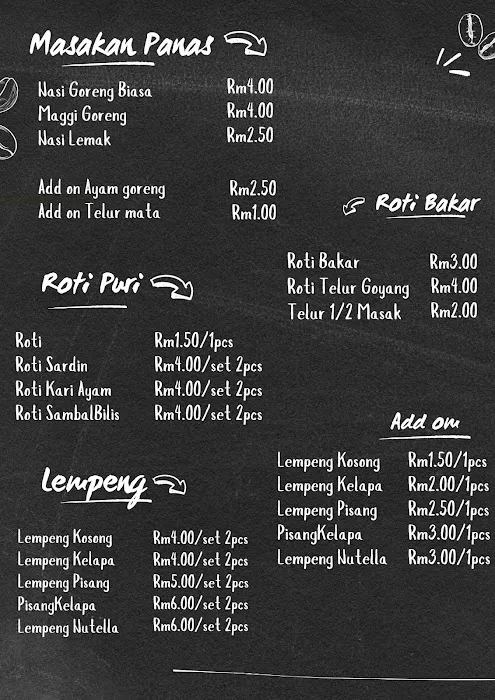 Masakan Panas
Nasi Goreng Biasa Rm4.00
Maggi Goreng Rm4.00
Nasi Lemak Rm2.50
Add on Ayam goreng Rm2.50
Add on Telur mata Rm1.00
Roti Bakar
Roti Bakar Rm3.00
Roti Telur Goyang Rm4.00
Telur 1/2 Masak Rm2.00
Roti Puri
Roti Rm1.50/1pcs
Roti Sardin Rm4.00/set 2pcs
Roti Kari Ayam Rm4.00/set 2pcs
Roti SambalBilis Rm4.00/set 2pcs
Add om
Lempeng Kosong Rm1.50/1pcs
Lempeng Kelapa Rm2.00/1pcs
Lempeng Pisang Rm2.50/1pcs
PisangKelapa Rm3.00/1pcs
Lempeng Nutella Rm3.00/1pcs
Lempeng
Lempeng Kosong Rm4.00/set 2pcs
Lempeng Kelapa Rm4.00/set 2pcs
Lempeng Pisang Rm5.00/set 2pcs
PisangKelapa Rm6.00/set 2pcs
Lempeng Nutella Rm6.00/set 2pcs